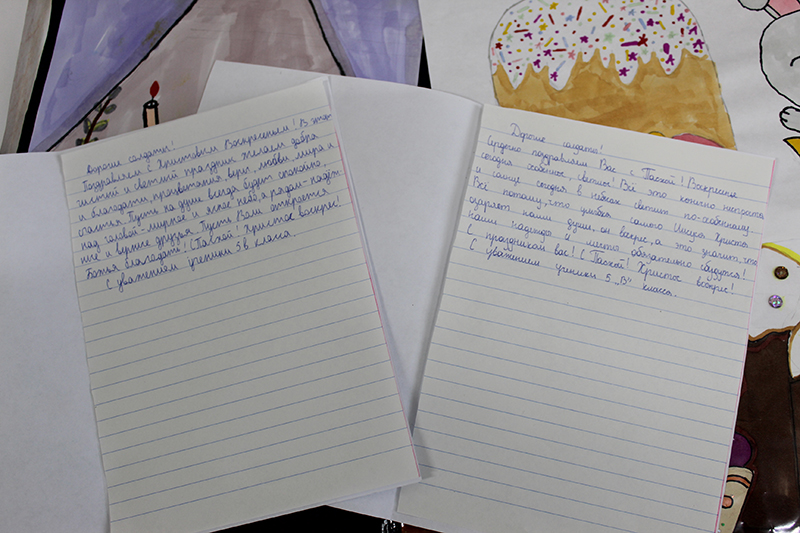 Дорогие солдаты!
Поздравляем с Христовым Воскресеньем! В этот
чистый и светлый праздник желаем добра
и благодати, процветания, веры, любви, мира и
счастья. Пусть на душе всегда будет спокойно,
над головой - мирное и ясное небо, а рядом - надёж-
ные и верные друзья. Пусть Вам откроется
Божья благодать! С Пасхой! Христос воскрес!
С уважением ученики 5 в класса.
Дорогие солдаты!
Сердечно поздравляем Вас с Пасхой! Воскресенье
сегодня особенное, святое! Всё это конечно непросто,
и солнце сегодня в небесах светит по-особенному.
Всё потому, что улыбка самого Иисуса Христа
озаряет наши души, он воскрес, а это значит, что
наши надежды и мечты обязательно сбудутся!
С праздником вас! С Пасхой! Христос воскрес!
С уважением ученики 5 „В" класса.